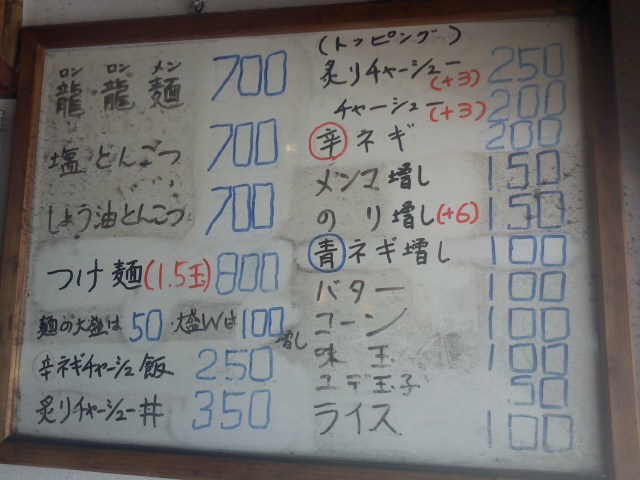 ロン ロン メン
龍 龍 麺 700
塩とんこつ 700
しょう油とんこつ 700
つけ麺(1.5玉) 800
麺の大盛は 50 大盛Wは 100 増し
辛ネギチャーシュー飯 250
炙りチャーシュー丼 350
(トッピング)
炙りチャーシュー(+3) 250
チャーシュー(+3) 200
辛ネギ 200
メンマ増し 150
のり増し(+6) 150
青ネギ増し 100
バター 100
コーン 100
味玉 100
ユデ玉子 50
ライス 100